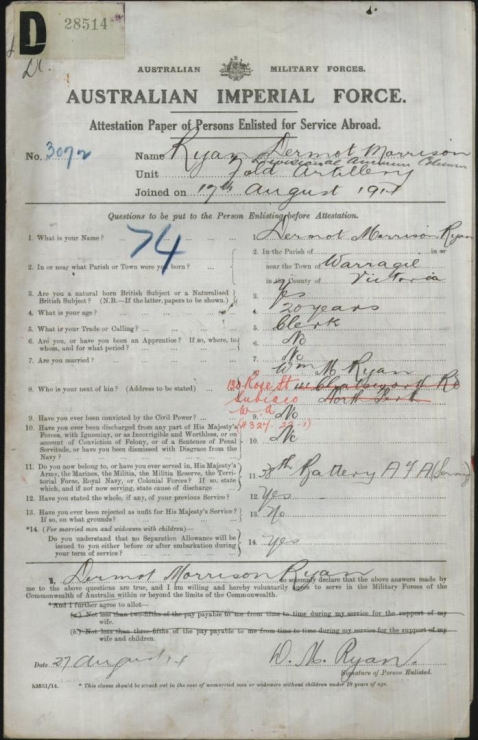 D 28514
AUSTRALIAN MILITARY FORCES.
AUSTRALIAN IMPERIAL FORCE.
Attestation Paper of Persons Enlisted for Service Abroad.
No. 3072 Name Ryan Dermot Morrison
Divisional Ammn Column
Unit Field Artillery
Joined on 17th August 1914
Questions to be put to the Person Enlisting before Attestation.
74
1. What is your Name? 1. Dermot Morrison Ryan
2. In or near what Parish or Town were you born? 2. In the Parish of in or
near the Town of Warragul
in the County of Victoria
3. Are you a natural born British Subject or a Naturalised
British Subject? (N.B.—If the latter, papers to be shown.) 3. Yes
4. What is your age? 4. 20 years
5. What is your Trade or Calling? 5. Clerk
6. Are you, or have you been an Apprentice? If so, where, to
whom, and for what period? 6. No
7. Are you married? 7. No
8. Who is your next of kin? (Address to be stated) 8. Wm M. Ryan
Rose St
Subiaco North
W A
9. Have you ever been convicted by the Civil Power? 9. No
10. Have you ever been discharged from any part of His Majesty's
Forces, with Ignominy, or as Incorrigible and Worthless, or on
account of Conviction of Felony, or of a Sentence of Penal
Servitude, or have you been dismissed with Disgrace from the
Navy? 10. No
11. Do you now belong to, or have you ever served in, His Majesty's
Army, the Marines, the Militia, the Militia Reserve, the Terri-
torial Force, Royal Navy, or Colonial Forces? If so, state
which, and if not now serving, state cause of discharge 11. Battery A F A
12. Have you stated the whole, if any, of your previous Service? 12. Yes –
13. Have you ever been rejected as unfit for His Majesty's Service?
If so, on what grounds? 13. No
*14. (For married men and widowers with children)—
Do you understand that no Separation Allowance will be
issued to you either before or after embarkation during
your term of service? 14. Yes
I, Dermot Morrison Ryan do solemnly declare that the above answers made by
me to the above questions are true, and I am willing and hereby voluntarily agree to serve in the Military Forces of the
Commonwealth of Australia within or beyond the limits of the Commonwealth.
*And I further agree to allot—
(a.) Not less than two-fifths of the pay payable to me from time to time during my service for the support of my
wife.
(b.) Not less than three-fifths of the pay payable to me from time to time during my service for the support of my
wife and children.
Date 27 August 14 D. M. Ryan.
Signature of Person Enlisted.
* This clause should be struck out in the case of unmarried men or widowers without children under 18 years of age.